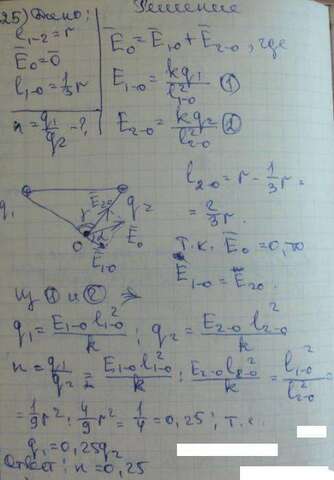 25) Дано:
Решение
l₁₋₂ = r
E̅₀ = 0̅
l₁₋₀ = 1/3 r
n = q₁/q₂ - ?
E̅₀ = E̅₁₋₀ + E̅₂₋₀, где
E₁₋₀ = kq₁/l²₁₋₀ ①
E₂₋₀ = kq₂/l²₂₋₀ ②
q₁
q₂
E̅₂₀
E̅₀
E̅₁₋₀
O
α
l₂₋₀ = r - 1/3 r =
= 2/3 r.
т.к. E̅₀ = 0, то
E₁₋₀ = E₂₀.
Из ① и ② ⇒
q₁ = E₁₋₀ l²₁₋₀/k ; q₂ = E₂₋₀ l²₂₋₀/k
n = q₁/q₂ = E₁₋₀ l²₁₋₀/k : E₂₋₀ l²₂₋₀/k = l²₁₋₀/l²₂₋₀ =
= 1/9 r² : 4/9 r² = 1/4 = 0,25; т.е.
q₁ = 0,25q₂
Ответ: n = 0,25